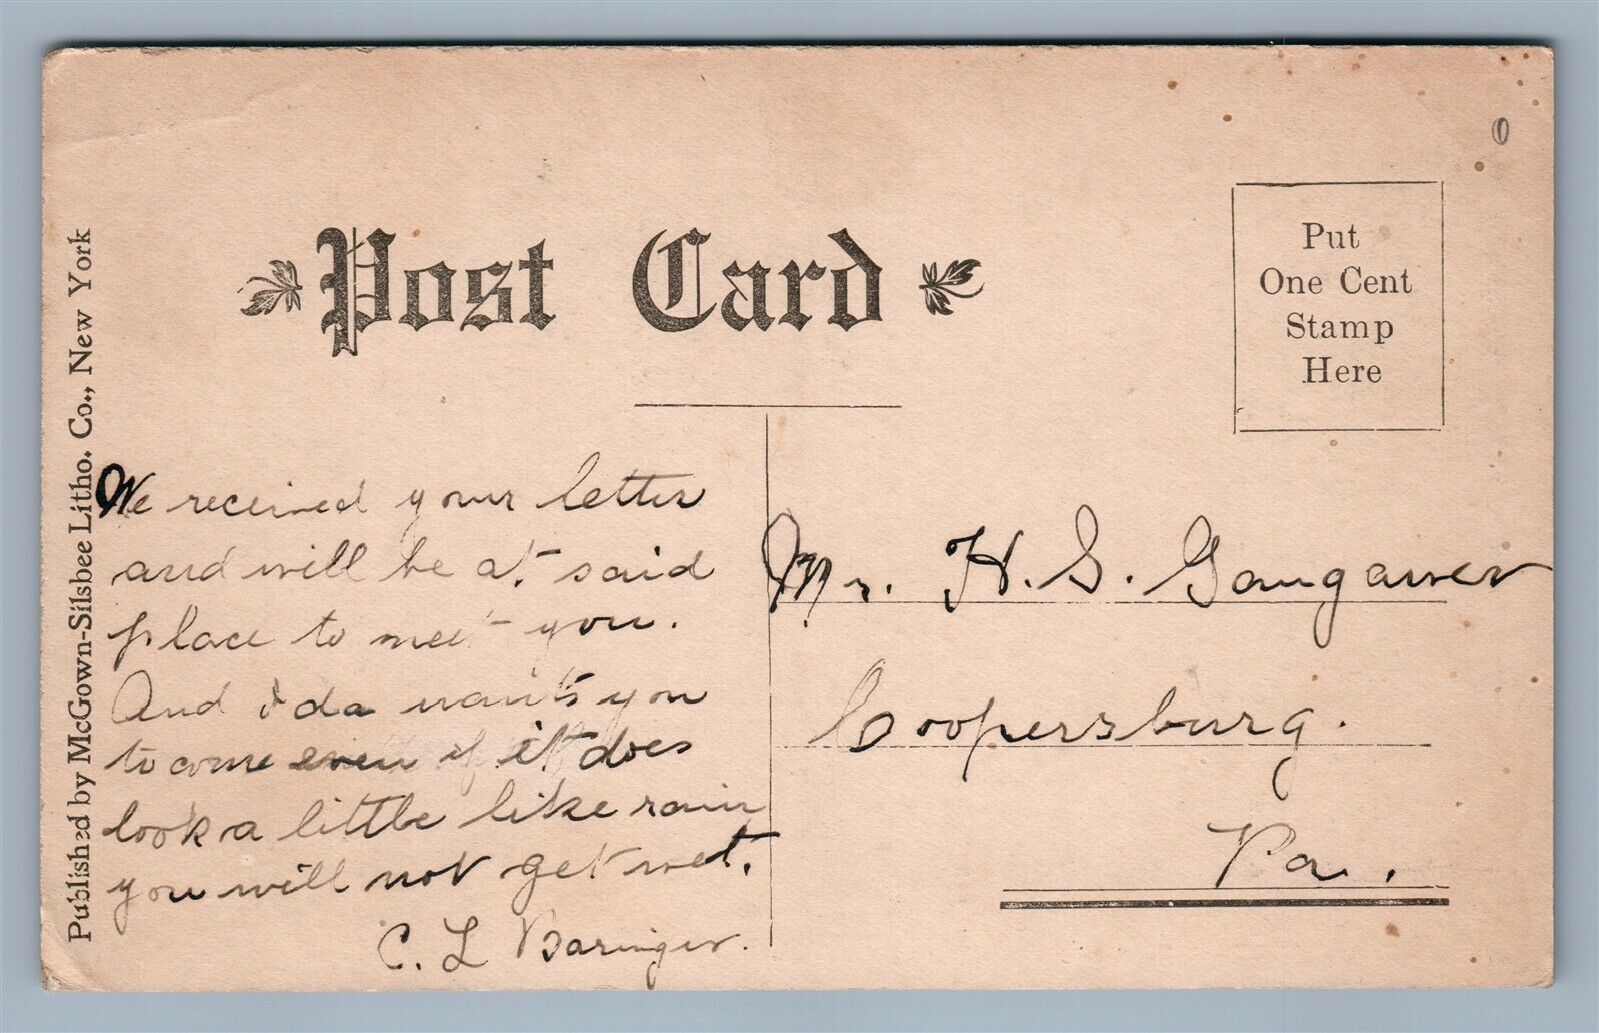 Post Card
Put
One Cent
Stamp
Here
Published by McGown-Silsbee Litho. Co., New York
We received your letter
and will be at said
place to meet you.
And Ida wants you
to come even if it does
look a little like rain
you will not get wet.
C. L Baringer.
Mr. H. S. Gaugawer
Coopersburg.
Pa.
0